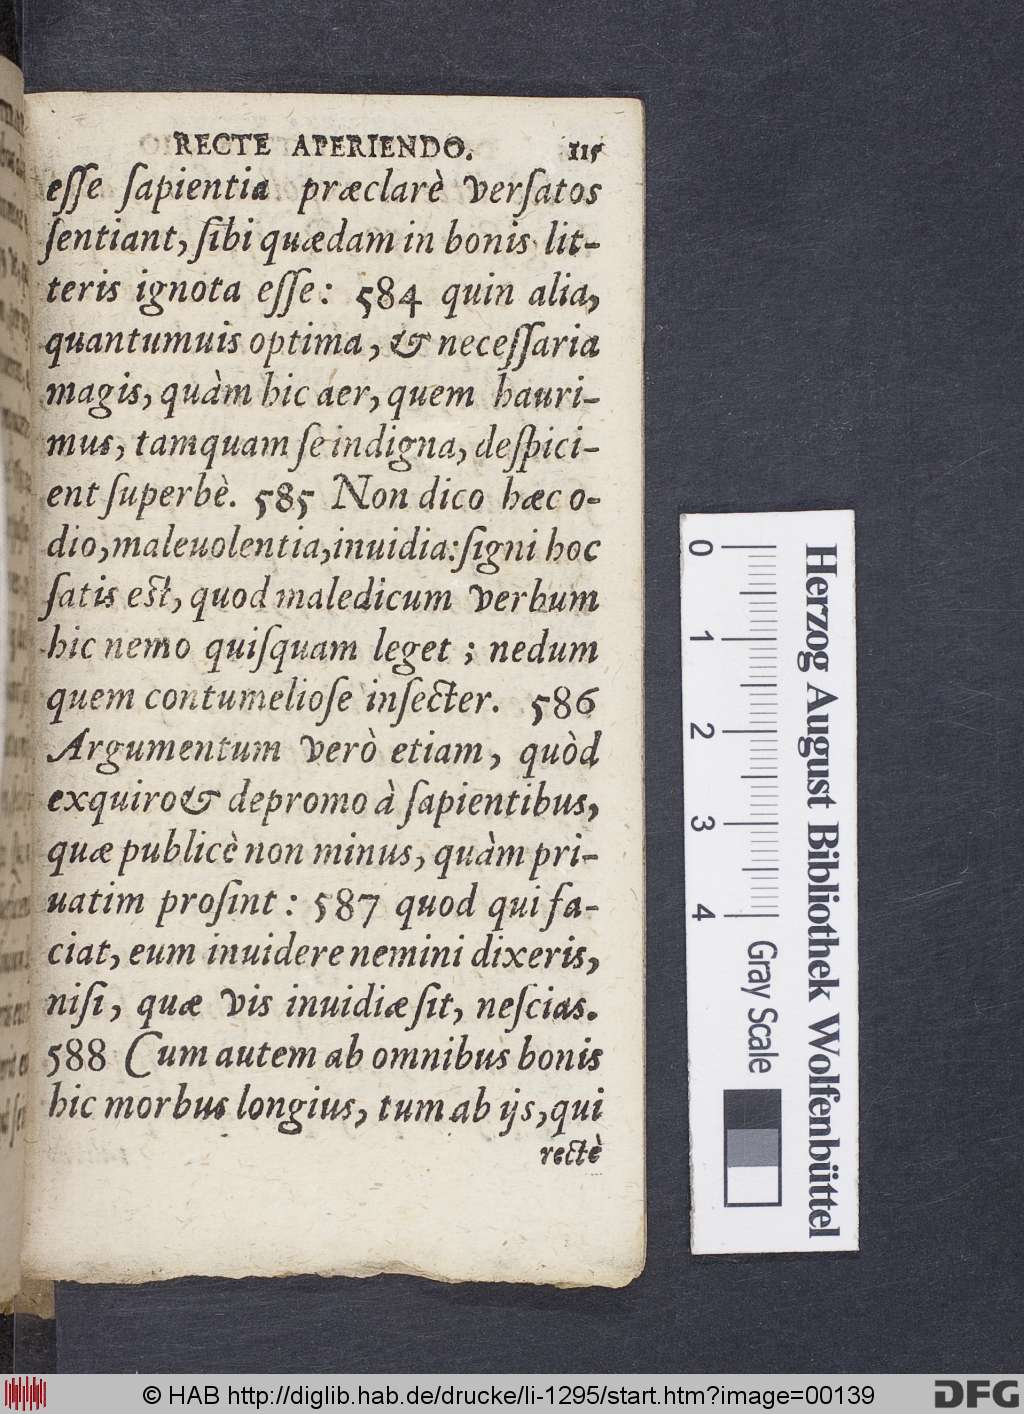 RECTE APERIENDO. 115
eſſe ſapientia præclarè verſatos
ſentiant, ſibi quædam in bonis lit-
teris ignota eſſe: 584 quin alia,
quantumuis optima, & neceſſaria
magis, quàm hic aer, quem hauri-
mus, tamquam ſe indigna, deſpici-
ent ſuperbè. 585 Non dico hæc o-
dio, maleuolentia, inuidia: ſigni hoc
ſatis est, quod maledicum verbum
hic nemo quiſquam leget ; nedum
quem contumelioſe inſecter. 586
Argumentum verò etiam, quòd
exquiro & depromo à ſapientibus,
quæ publicè non minus, quàm pri-
uatim proſint : 587 quod qui fa-
ciat, eum inuidere nemini dixeris,
niſi, quæ vis inuidiæ ſit, neſcias.
588 Cum autem ab omnibus bonis
hic morbus longius, tum ab ijs, qui
rectè
0 1 2 3 4
Gray Scale
Herzog August Bibliothek Wolfenbüttel
© HAB http://diglib.hab.de/drucke/li-1295/start.htm?image=00139
DFG